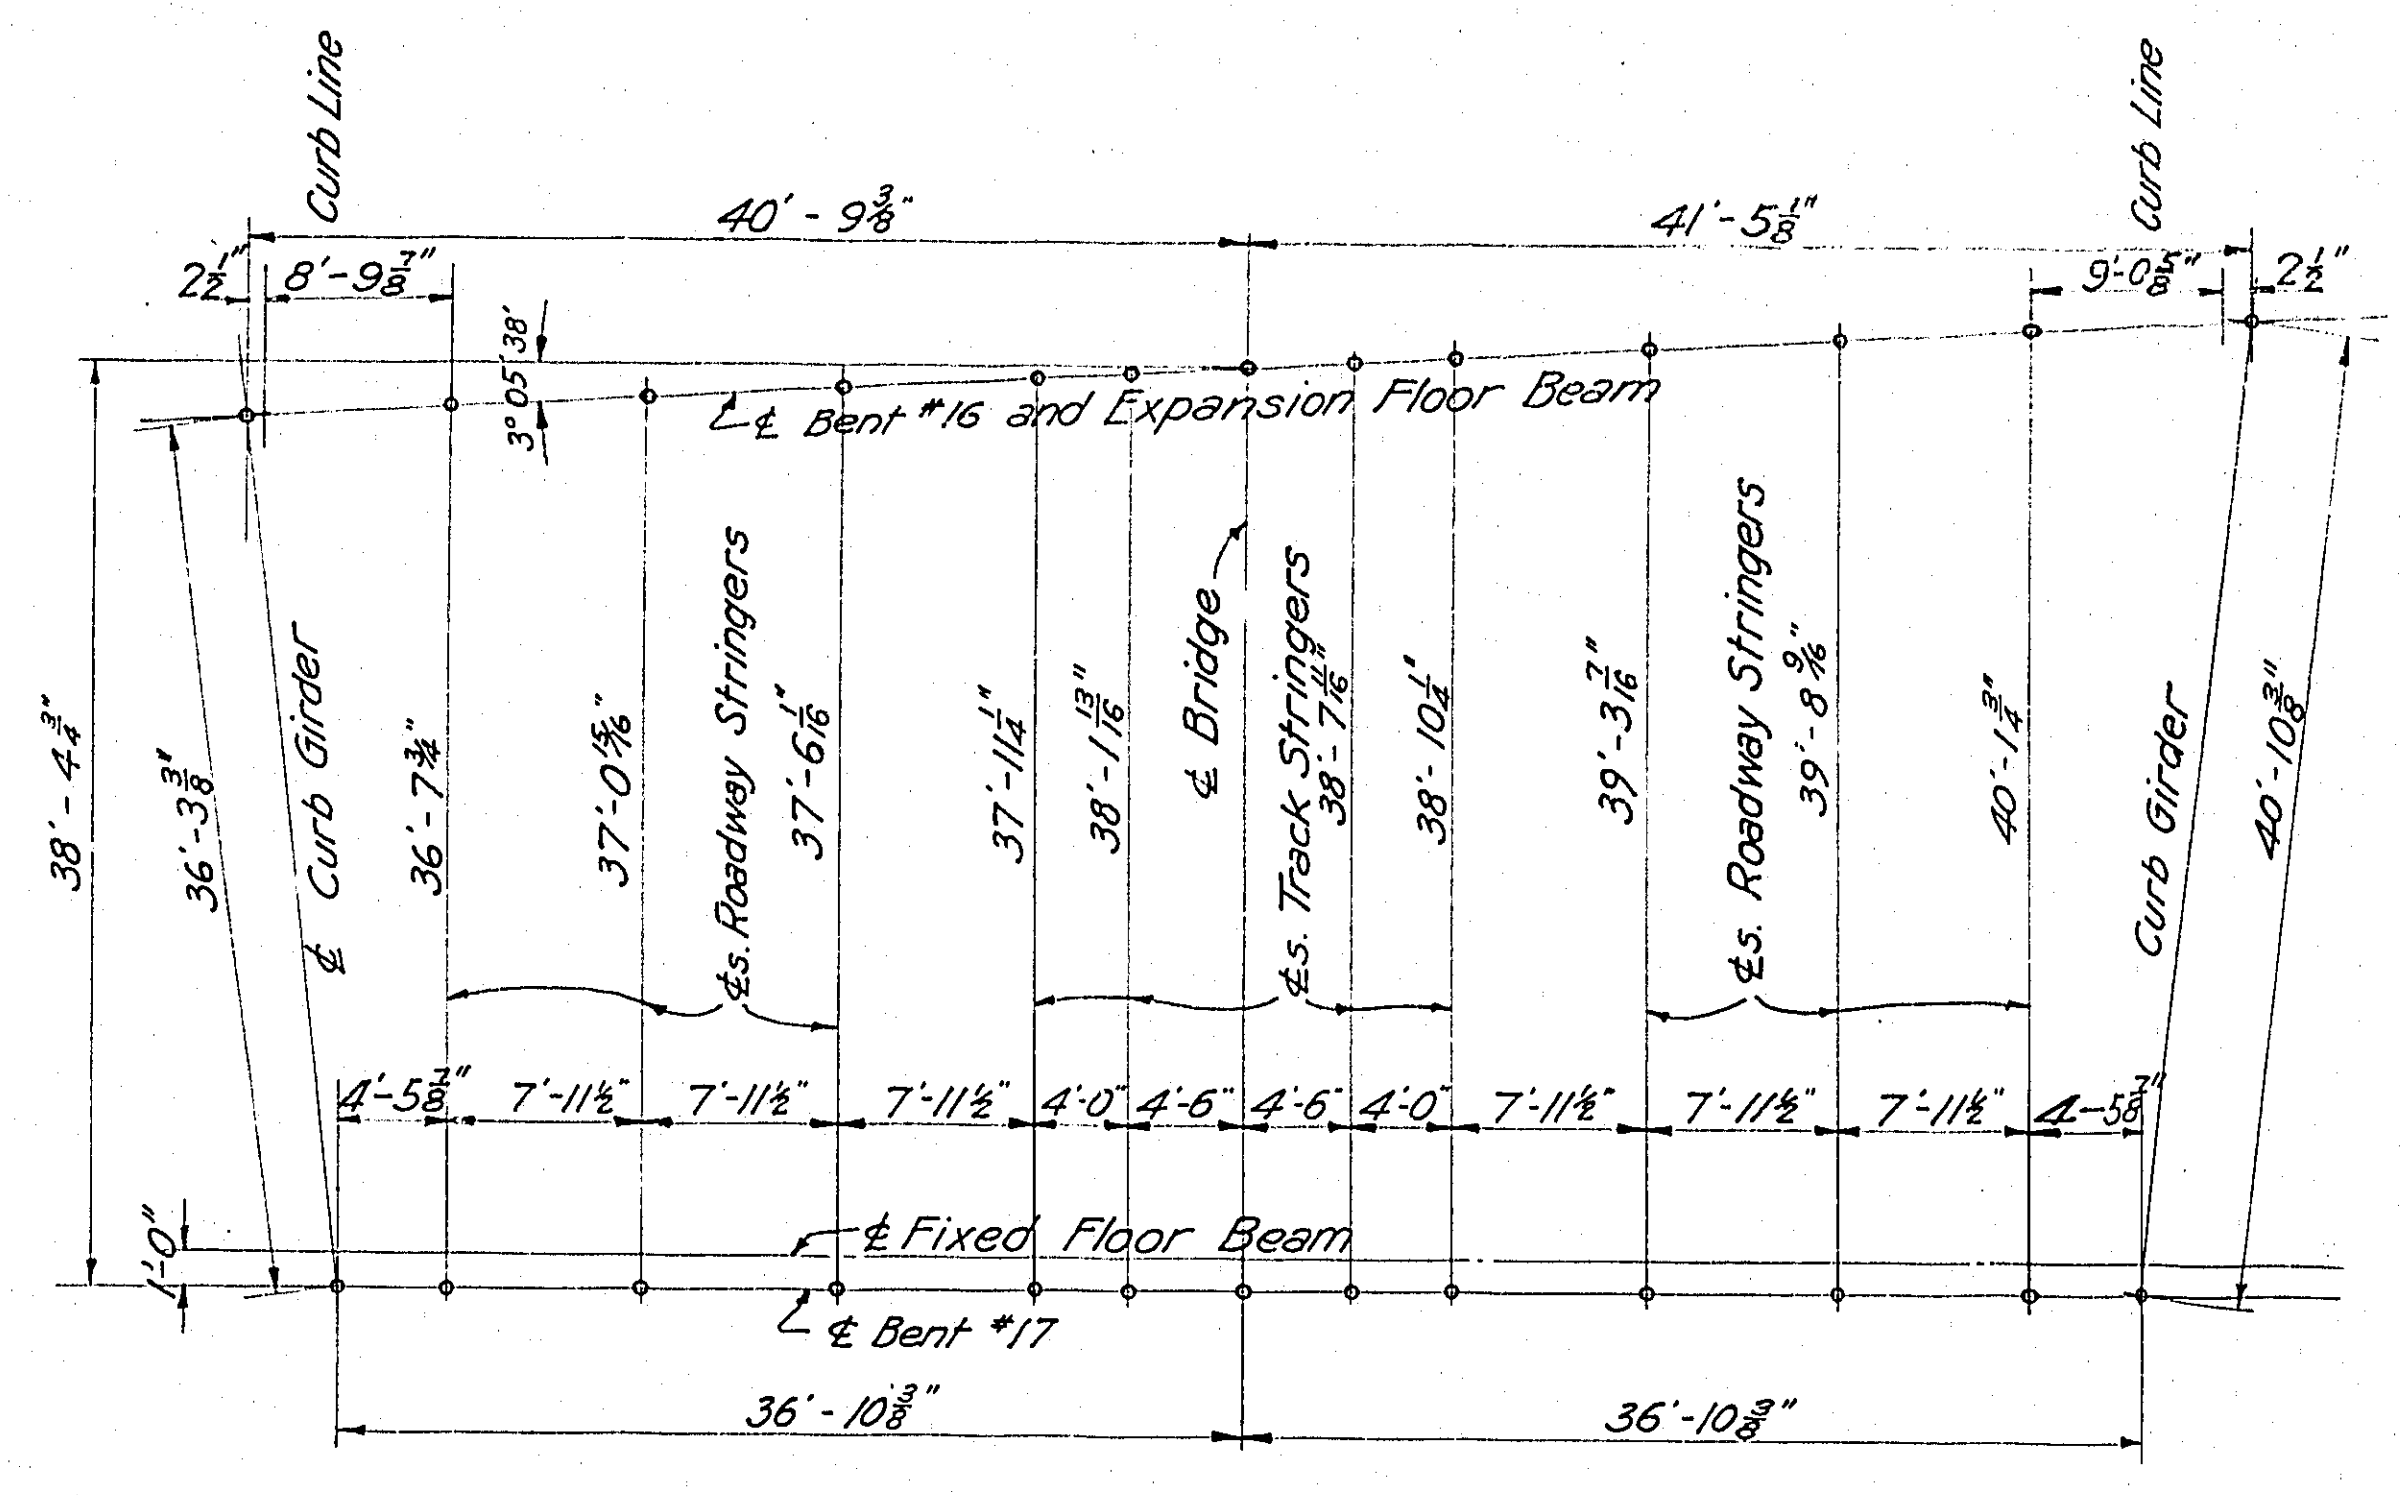 Curb Line
Curb Line
40' - 9 3/8"
41' - 5 1/8"
2 1/2"
8' - 9 7/8"
9' - 0 5/8"
2 1/2"
3° 05' 38'
℄ Bent #16 and Expansion Floor Beam
38' - 4 3/4"
36' - 3 3/8"
℄ Curb Girder
36' - 7 3/4"
37' - 0 15/16"
℄s. Roadway Stringers
37' - 6 1/16"
37' - 11 1/4"
38' - 1 13/16"
℄ Bridge
℄s. Track Stringers
38' - 7 11/16"
38' - 10 1/4"
39' - 3 7/16"
℄s. Roadway Stringers
39' - 8 9/16"
40' - 1 3/4"
Curb Girder
40' - 10 3/8"
4' - 5 7/8"
7' - 11 1/2"
7' - 11 1/2"
7' - 11 1/2"
4' - 0"
4' - 6"
4' - 6"
4' - 0"
7' - 11 1/2"
7' - 11 1/2"
7' - 11 1/2"
4 - 5 7/8"
1' - 0"
℄ Fixed Floor Beam
℄ Bent #17
36' - 10 3/8"
36' - 10 3/8"